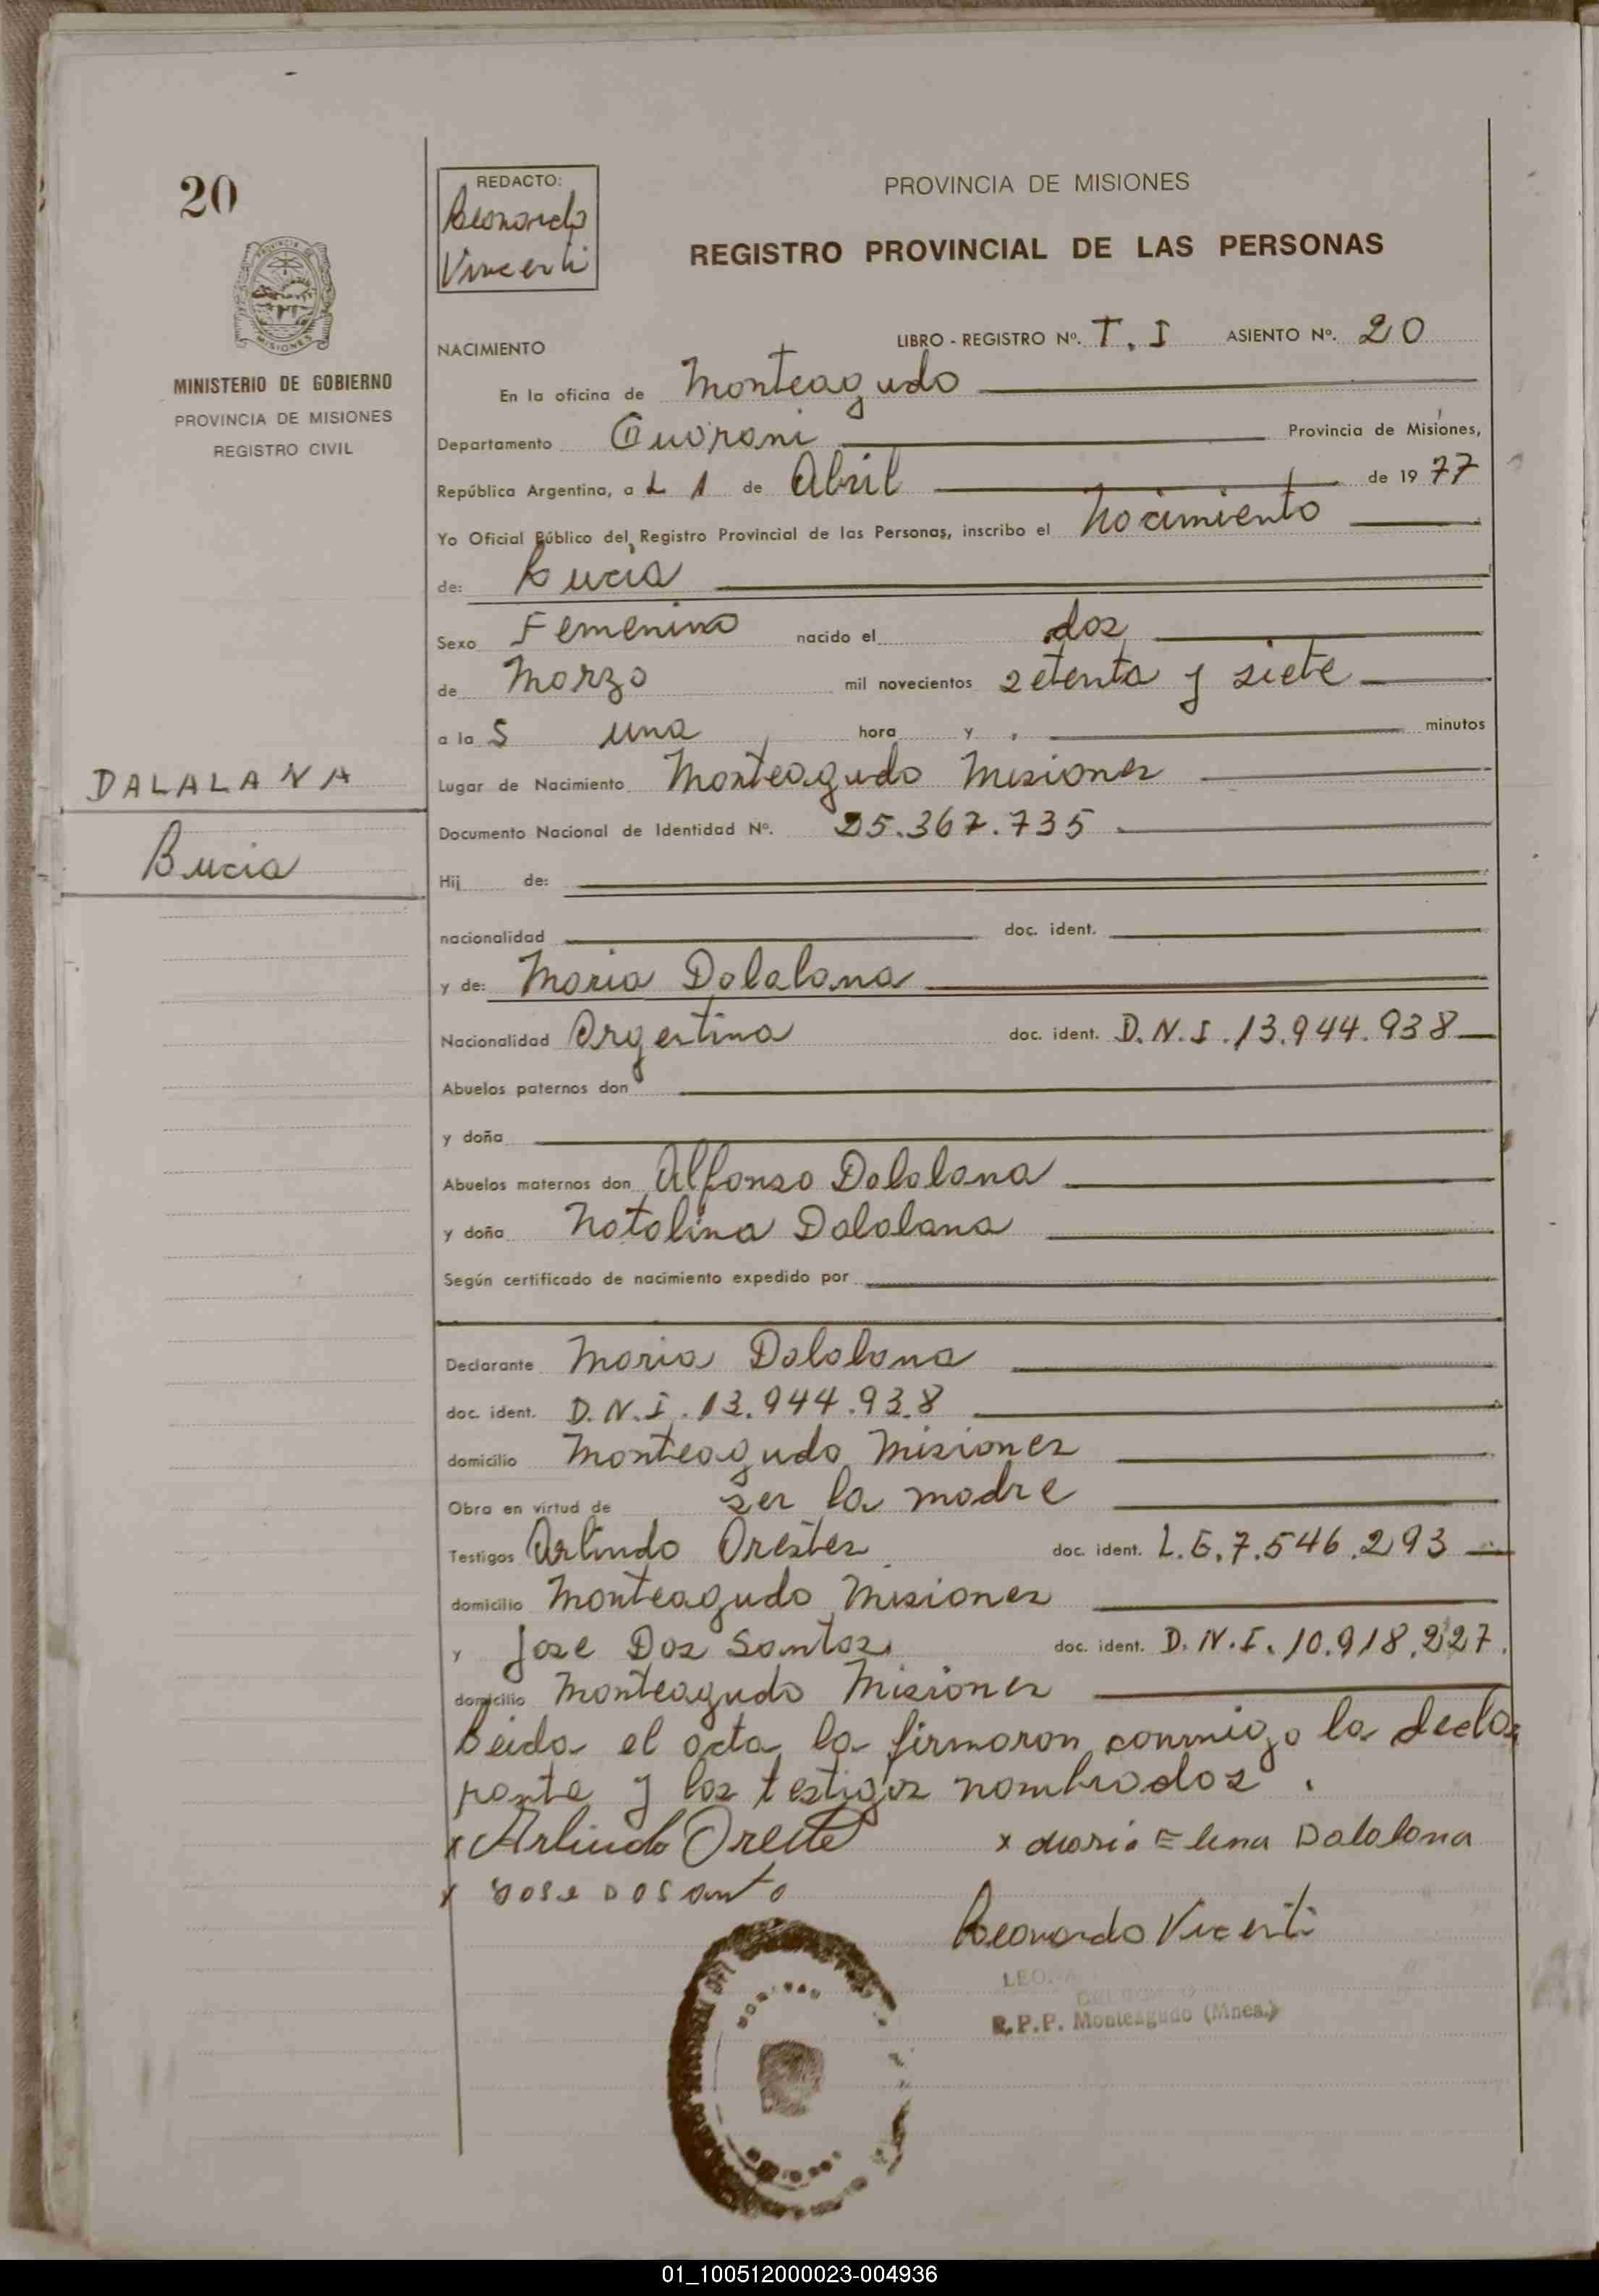 20
REDACTO:
Leonardo
Vincenti
PROVINCIA DE MISIONES
REGISTRO PROVINCIAL DE LAS PERSONAS
MINISTERIO DE GOBIERNO
PROVINCIA DE MISIONES
REGISTRO CIVIL
NACIMIENTO LIBRO - REGISTRO Nº. T. I ASIENTO Nº. 20
En la oficina de Monteagudo
Departamento Guarani Provincia de Misiones,
República Argentina, a L 1 de Abril de 1977
Yo Oficial Público del Registro Provincial de las Personas, inscribo el Nacimiento
de: Lucia
Sexo Femenino nacido el dos
de Marzo mil novecientos setenta y siete
a la S una hora y minutos
DALALANA
Lucia
Lugar de Nacimiento Monteagudo Misiones
Documento Nacional de Identidad Nº. 25.367.735
Hij de:
nacionalidad doc. ident.
y de: Maria Dalalana
Nacionalidad Argentina doc. ident. D.N.I. 13.944.938
Abuelos paternos don
y doña
Abuelos maternos don Alfonso Dalalana
y doña Natalina Dalalana
Según certificado de nacimiento expedido por
Declarante Maria Dalalana
doc. ident. D.N.I. 13.944.938
domicilio Monteagudo Misiones
Obra en virtud de ser la madre
Testigos Arlindo Orestes doc. ident. L.E. 7.546.293
domicilio Monteagudo Misiones
y Jose Dos Santos doc. ident. D.N.I. 10.918.227.
domicilio Monteagudo Misiones
Leida el acta la firmaron conmigo la decla
rante y los testigos nombrados.
x Arlindo Oreste x Maria Elena Dalalana
x Jose Dosanto
Leonardo Vicenti
R.P.P. Monteagudo (Mnes.)
01_100512000023-004936